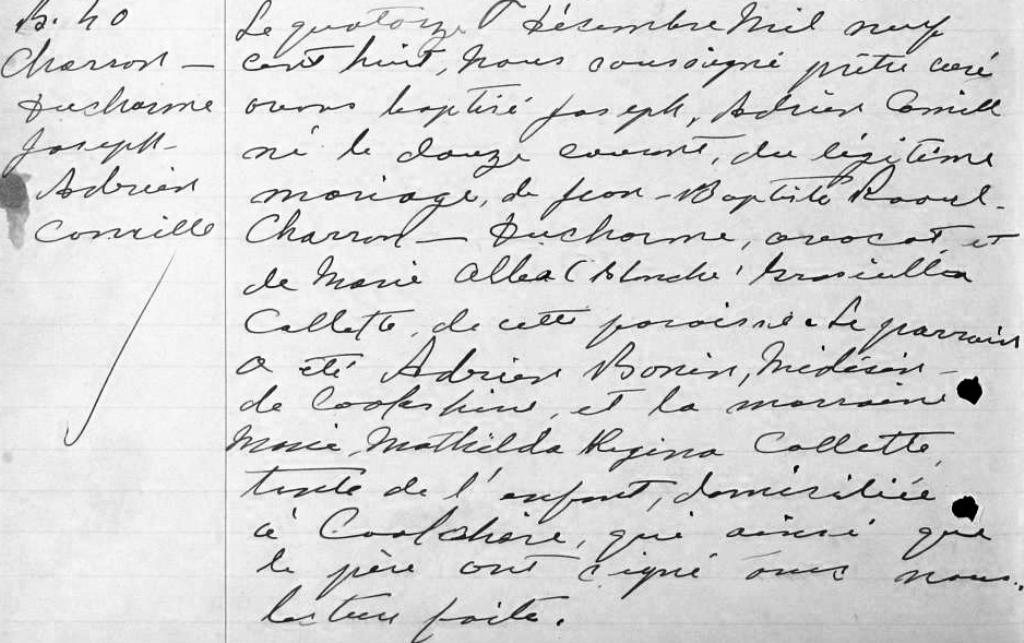 B. 40
Charron —
Ducharme
Joseph-
Adrien
Camille
Le quatorze Décembre Mil neuf
cent huit, Nous soussigné prêtre curé
avons baptisé Joseph, Adrien Camille
né le douze courant, du légitime
mariage, de Jean-Baptiste Raoul-
Charron — Ducharme, avocat et
de Marie (Blanche) Graziella
Collette, de cette paroisse. Le parrain
a été Adrien Bonin, Médecin-
de Cookshire, et la marraine
Marie, Mathilda Regina Collette,
tante de l'enfant, domiciliée
à Cookshire, qui ainsi que
le père ont signé avec nous.
lecture faite.